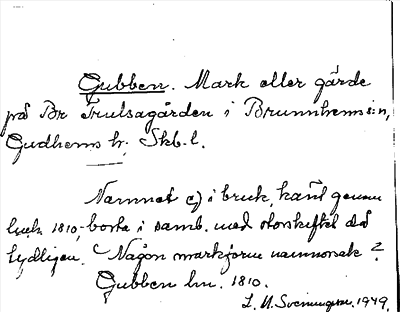 Gubben. Mark eller gärde
på Br Trulsagården i Brunnhems sn,
Gudhems hr, Skb. l.
Namnet ej i bruk, känt genom
1810, borta i samb. med storskiftet då
tydligen. Någon markform namnorsak?
Gubben lm. 1810.
L. M. Svenungsson. 1949.